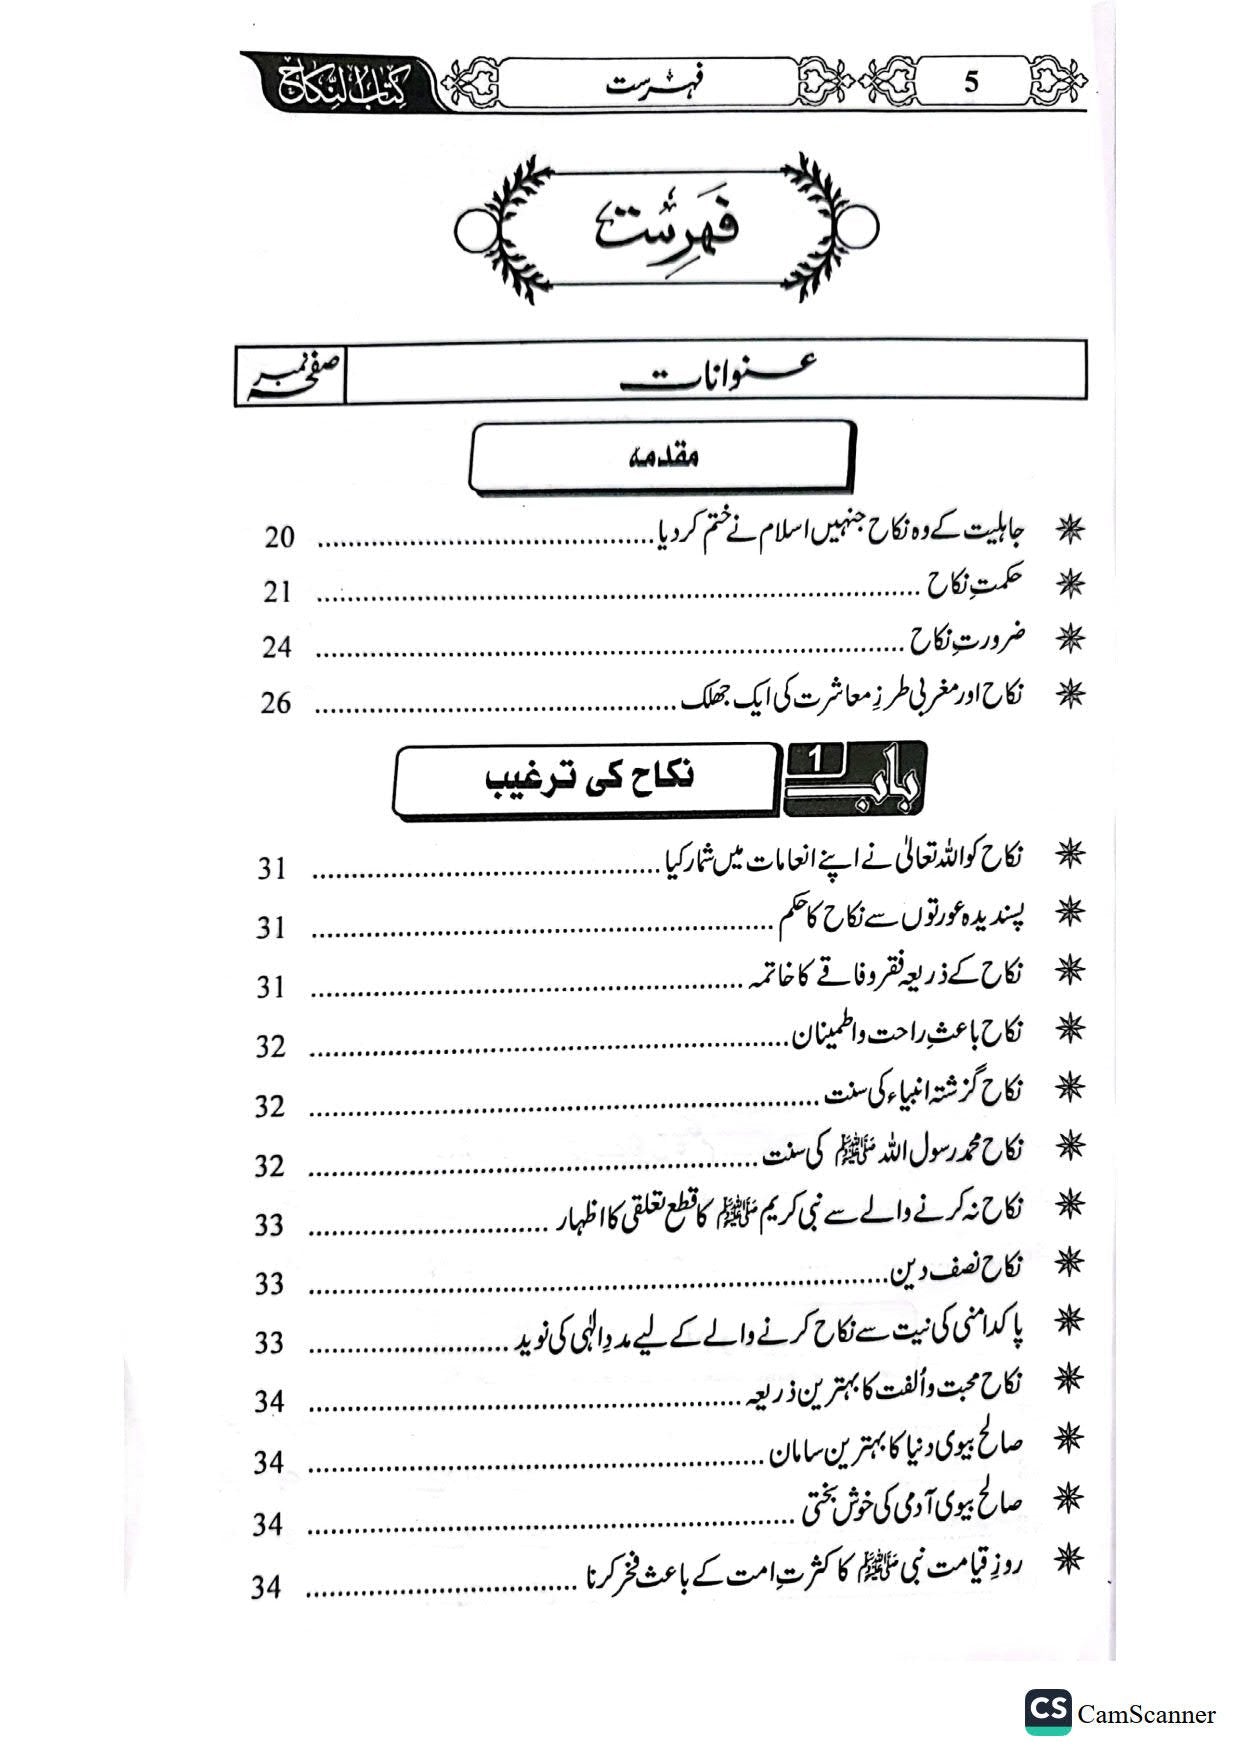 5 فہرست کتابُ النِّکاح
فَہرِست
عنوانات صفحہ نمبر
مقدمہ
جاہلیت کے وہ نکاح جنہیں اسلام نے ختم کر دیا 20
حکمتِ نکاح 21
ضرورتِ نکاح 24
نکاح اور مغربی طرزِ معاشرت کی ایک جھلک 26
باب 1 نکاح کی ترغیب
نکاح کو اللہ تعالیٰ نے اپنے انعامات میں شمار کیا 31
پسندیدہ عورتوں سے نکاح کا حکم 31
نکاح کے ذریعہ فقر و فاقے کا خاتمہ 31
نکاح باعثِ راحت و اطمینان 32
نکاح گزشتہ انبیاء کی سنت 32
نکاح محمد رسول اللہ ﷺ کی سنت 32
نکاح نہ کرنے والے سے نبی کریم ﷺ کا قطع تعلقی کا اظہار 33
نکاح نصف دین 33
پاکدامنی کی نیت سے نکاح کرنے والے کے لیے مددِ الٰہی کی نوید 33
نکاح محبت و اُلفت کا بہترین ذریعہ 34
صالح بیوی دنیا کا بہترین سامان 34
صالح بیوی آدمی کی خوش بختی 34
روزِ قیامت نبی ﷺ کا کثرتِ امت کے باعث فخر کرنا 34
CS CamScanner